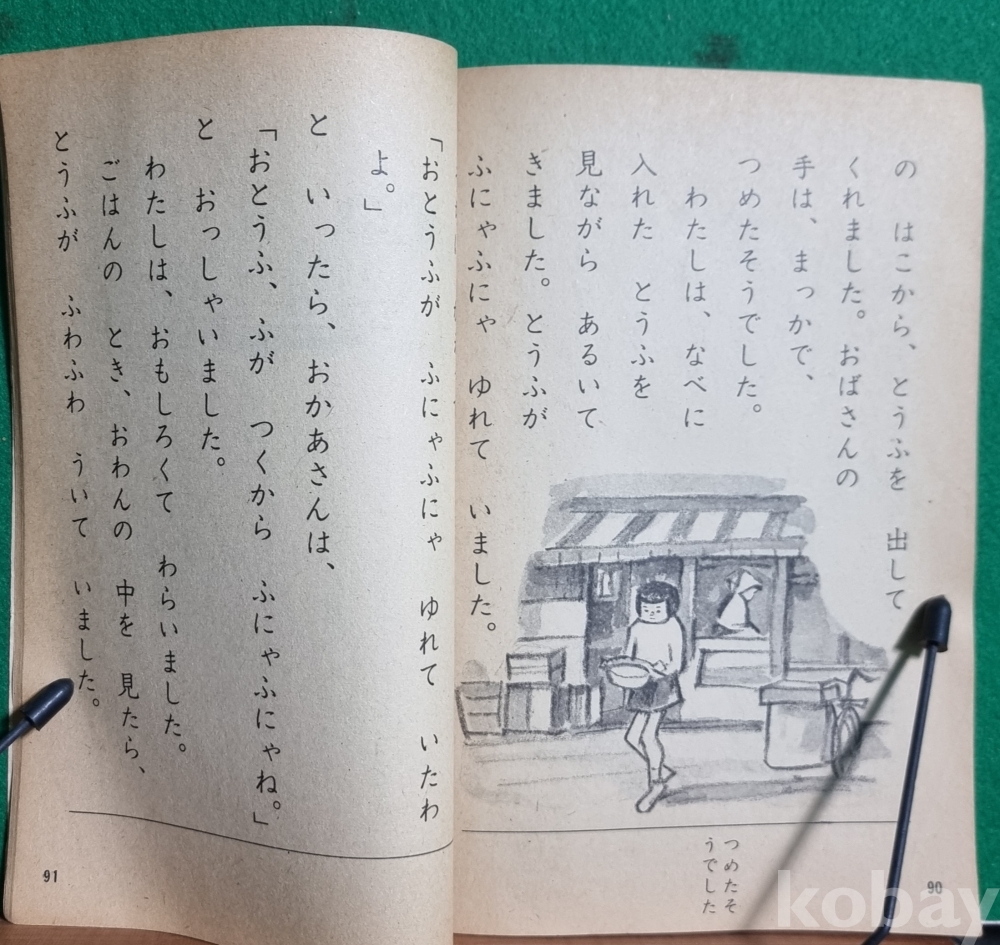 の　はこから、とうふを　出して
くれました。おばさんの
手は、まっかで、
つめたそうでした。
わたしは、なべに
入れた　とうふを
見ながら　あるいて
きました。とうふが
ふにゃふにゃ　ゆれて　いました。
つめたそ
うでした
90
「おとうふが　ふにゃふにゃ　ゆれて　いたわ
よ。」
と　いったら、おかあさんは、
「おとうふ、ふが　つくから　ふにゃふにゃね。」
と　おっしゃいました。
わたしは、おもしろくて　わらいました。
ごはんの　とき、おわんの　中を　見たら、
とうふが　ふわふわ　ういて　いました。
91
kobay